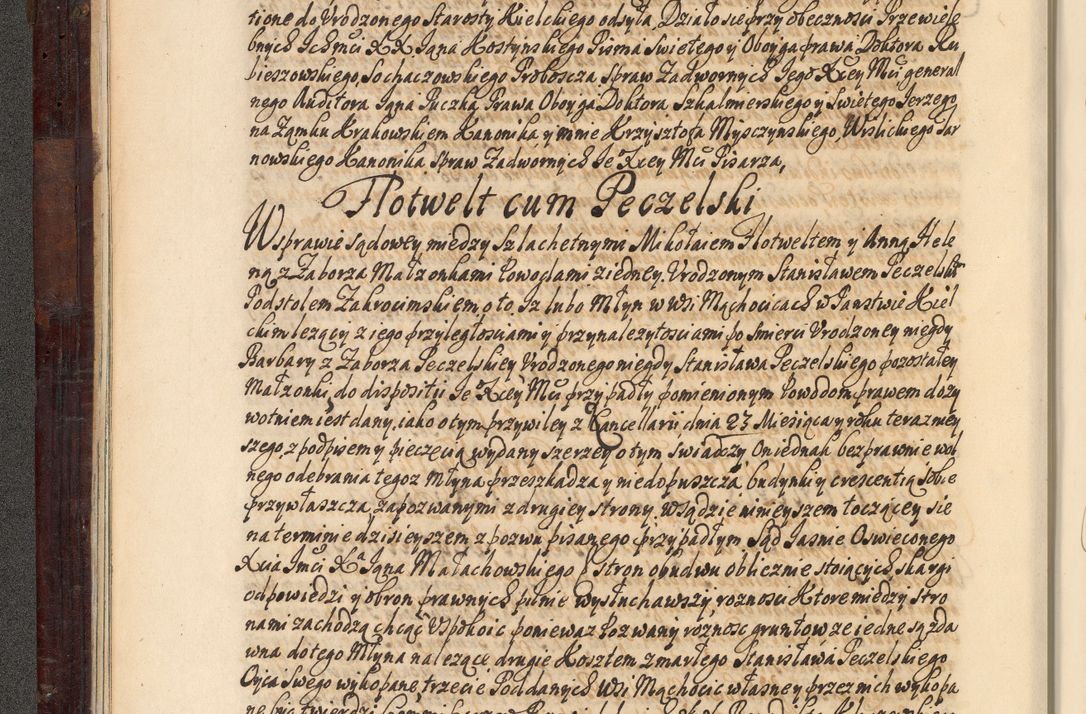 tione do Vrodzonego Starosty Kielckiego odsyła, Działo sie przy obecnosci Przewiele
bnych Ichmci XX. Iana Kostynskiego Pisma Swietego y Oboyga prawa Doktora Ku
bieszowskiego, Sochaczowskiego Proboscza, spraw Zadwornych Iego Xcey Mci general
nego Auditora, Iana Puczka, Prawa Oboyga Doktora Szkalmierskiego y Swietego Ierzego
na Zamku Krakowskiem Kanonika, y mnie Krzysztofa Mysczynskiego, Wislickiego Tar
nowskiego Kanonika, spraw Zadwornych Ie Xcey Mci Pisarza,
Flotwelt cum Peczelski
W sprawie sądowey miedzy Szlachetnymi Mikołaiem Flotweltem y Anną Hele
ną z Zaborza Małzonkami Powodami z iedney. Vrodzonym Stanisławem Peczelskim
Podstolem Zakrocimskiem, o to, Iz lubo Młyn w Wsi Mąchocicach w Panstwie Kiel
ckim lezący z iego przyległosciami y przynalezytosciami po smierci Vrodzoney niegdy
Barbary z Zaborza Peczelskiey Vrodzonego niegdy Stanisława Peczelskiego pozostałey
Małzonki, do disposityi Ie Xcey Mci przypadły pomienionym Powodom prawem dozy
wotniem iest dany, iako o tym przywiley z Cancellarii dnia 23 Miesiąca y roku terazniey
szego, z podpisem y pieczęcią wydany szerzey o tym swiadczy. Oni ednak bezprawnie wol
nego odebrania tegoz Młyna przeszkadza y niedopuszcza, budynki y crescentią sobie
przywłaszcza, zapozwanymi z drugiey strony, W sądzie ninieyszem toczącey sie
na terminie dzisieyszem z pozwu pisanego przypadłym. Sąd Iasnie Oswieconego
Xcia Imci Xa Iana Małachowskiego stron obudwu oblicznie stoiących, skargi
odpowiedzi y obron prawnych pilnie wysłuchawszy, roznosci Ktore miedzy Stro
nami zachodzą chcąc Vspokoic poniewaz Pozwany roznosc gruntow ze iedne są zda
wna do tego Młyna nalezące drugie Kosztem zmarłego Stanisława Peczelskiego
Oyca Swego wykopane, trzecie Poddanych Wsi Mąchocic własne y przez nich wykopa
ne bydz twierdzi